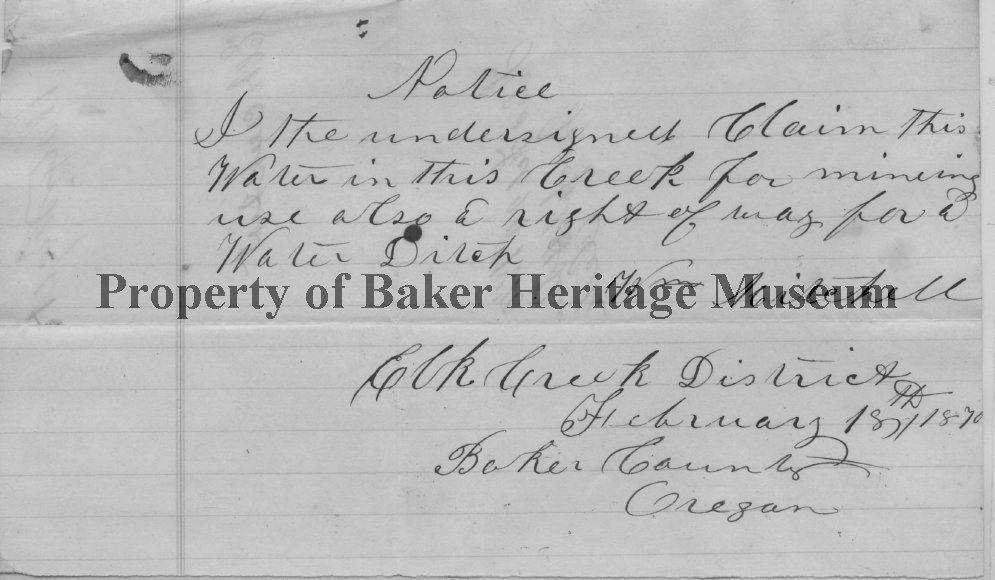 Notice
I the undersigned Claim this
Water in this Creek for mineing
use also a right of way for a
Water Ditch
Wm Mitchell
Property of Baker Heritage Museum
Elk Creek District
February 18th 1870
Baker County
Oregon